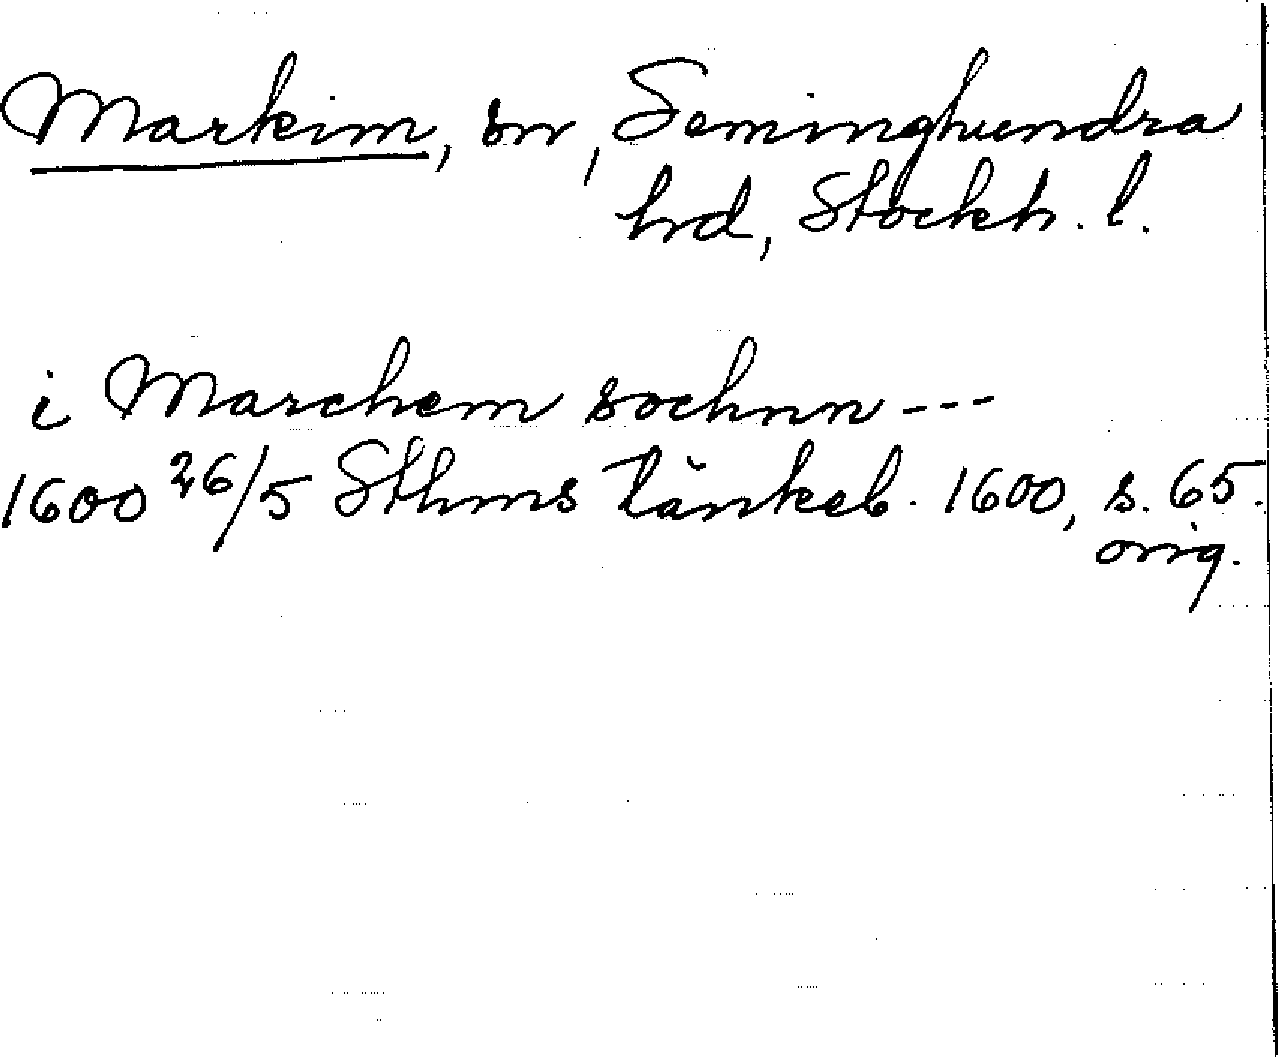 Markim, sn, Seminghundra
hrd, Stockh. l.
i Marchem sochnn ---
1600 26/5 Sthms tänkeb. 1600, s. 65.
orig.